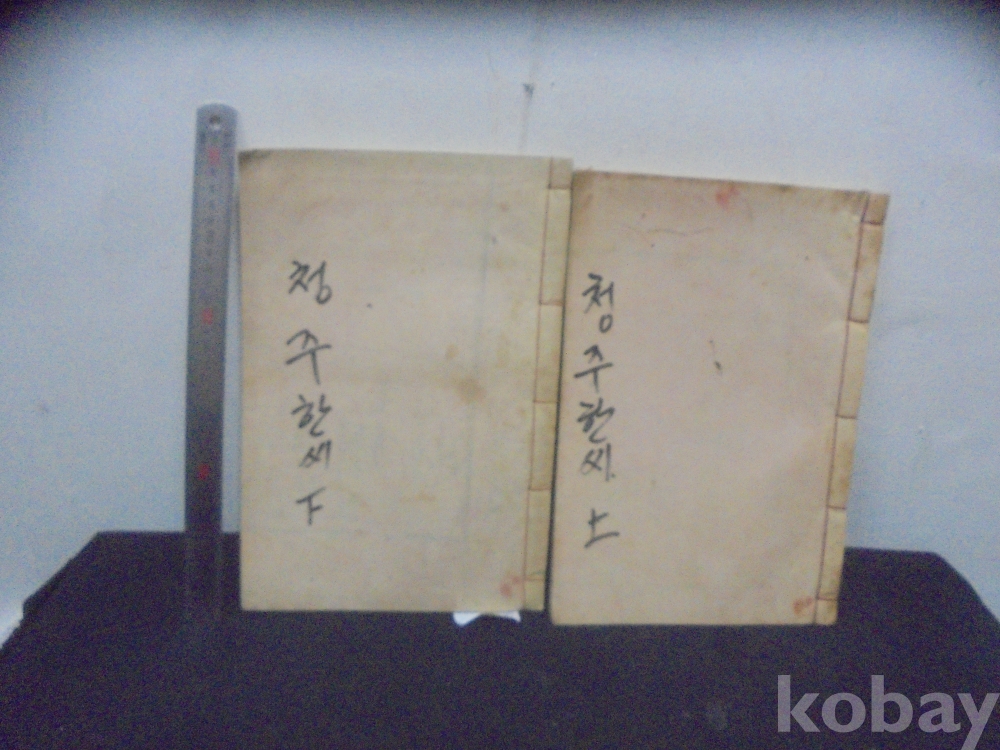 청주한씨 下
청주한씨 上
kobay